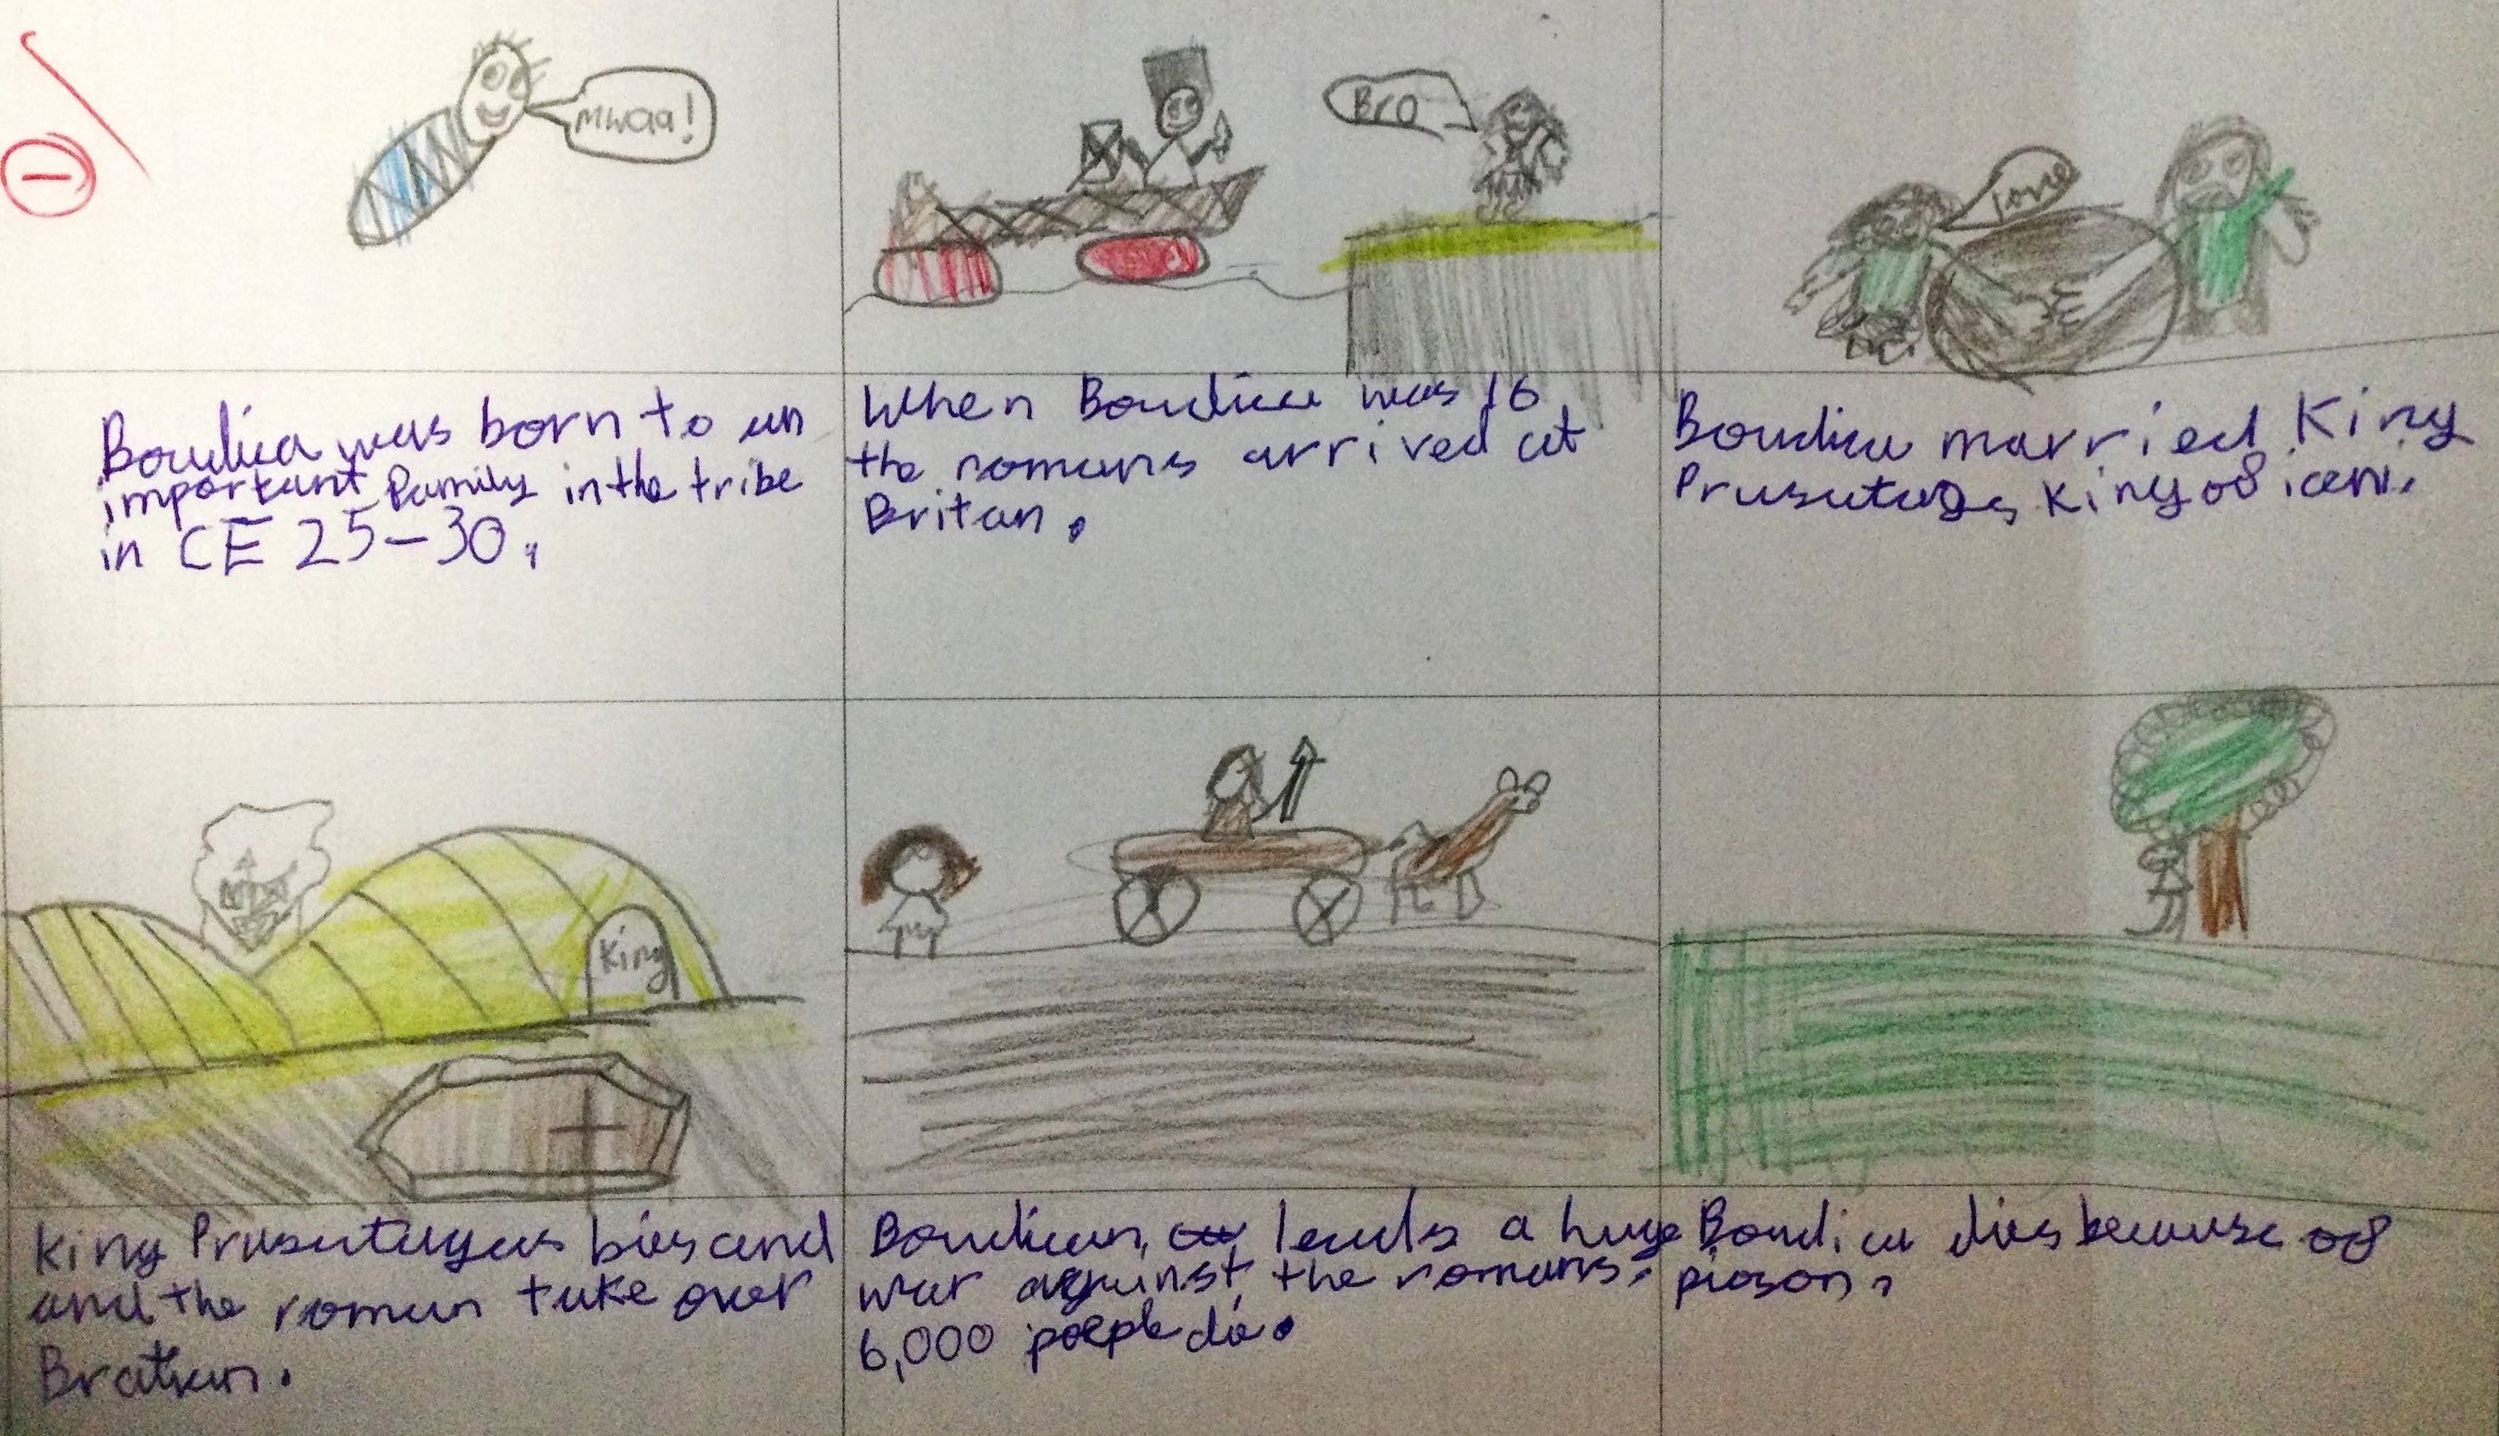 Mwaa!
Boudica was born to an
important family in the tribe
in CE 25-30.
Bro
When Boudica was 16
the romans arrived at
Britan.
love
Boudica married King
Prusutags King of iceni.
King
King Prasutagus dies and
and the roman take over
Bratian.
Boudican, leads a huge
war against the romans.
6,000 poeple die.
Boudica dies because of
pioson.